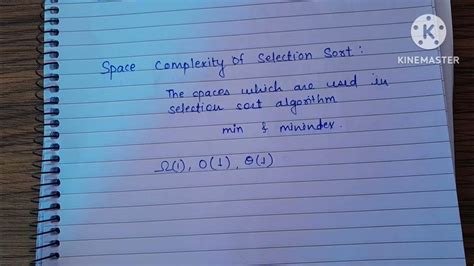 KINEMASTER
Space Complexity of Selection Sort :
The spaces which are used in
selection sort algorithm
min & minindex.
Ω(1), O(1), Θ(1)